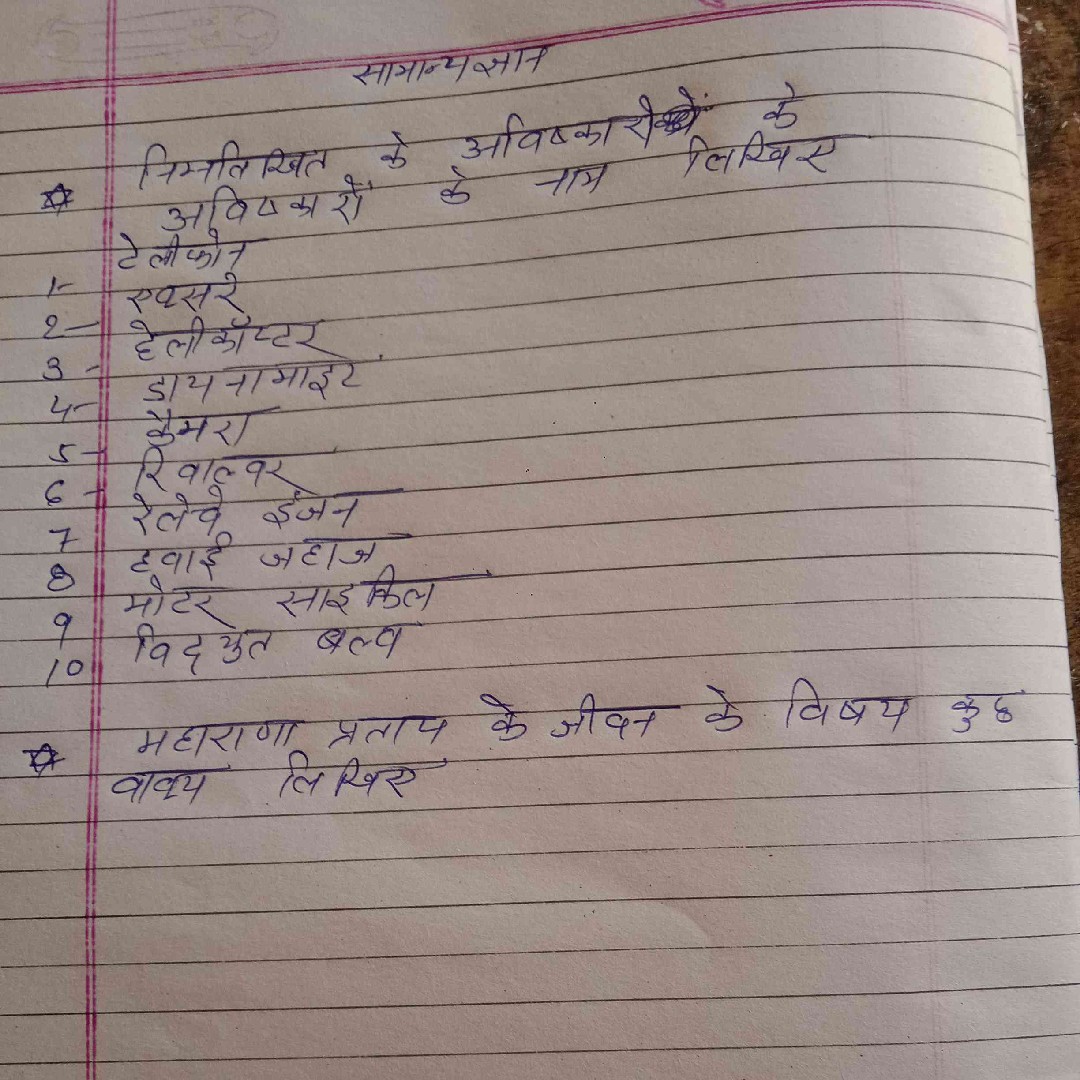 सामान्यज्ञान
☆ निम्नलिखित के अविष्कारों के
अविष्कारों के नाम लिखिए
1- टेलीफोन
2- एक्सरे
3- हेलीकॉप्टर
4- डायनामाइट
5- कैमरा
6- रिवाल्वर
7 रेलवे इंजन
8 हवाई जहाज
9 मोटर साइकिल
10 विद्युत बल्व
☆ महाराणा प्रताप के जीवन के विषय कुछ
वाक्य लिखिए